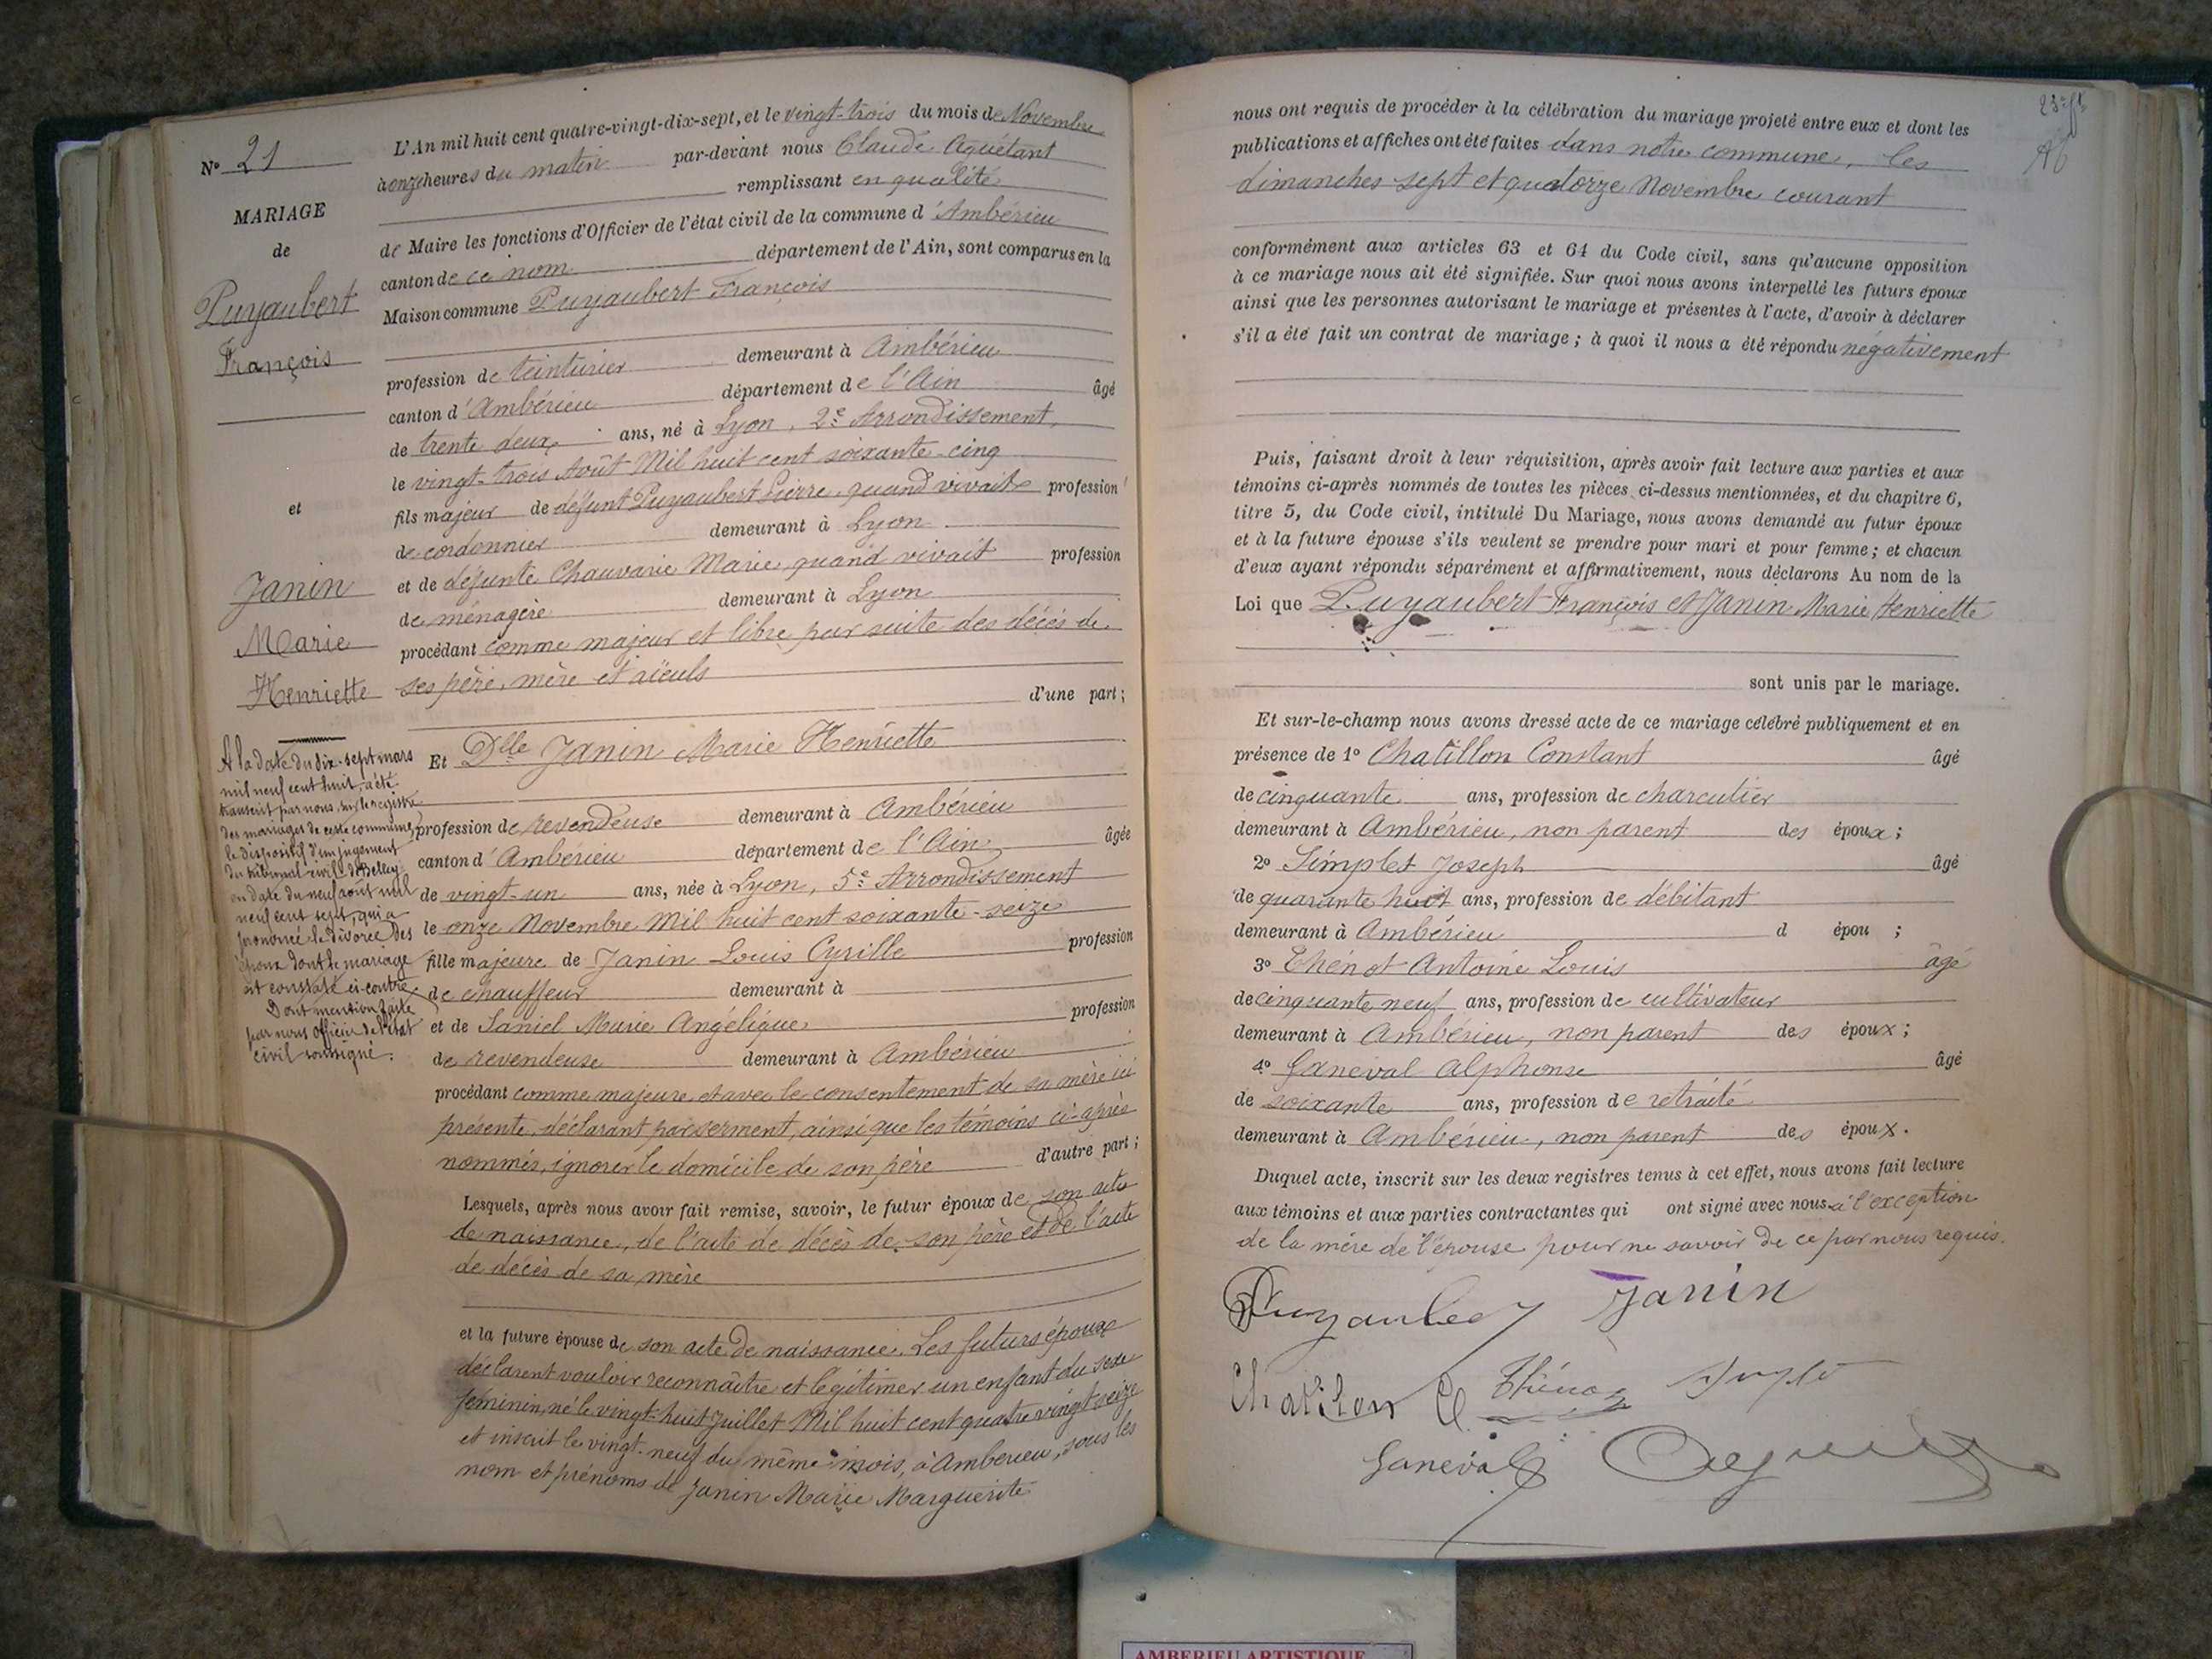 N° 21
MARIAGE
de
Puyaubert
François
et
Janin
Marie
Henriette
A la date du dix-sept mars
mil neuf cent huit, a été
transcrit par nous, sur le registre
des mariages de cette commune,
le dispositif d'un jugement
du tribunal civil de Belley
en date du neuf août mil
neuf cent sept, qui a
prononcé le divorce des
époux dont le mariage
est constaté ci-contre.
Dont mention faite
par nous officier de l'état
civil soussigné.
L'An mil huit cent quatre-vingt-dix-sept, et le vingt-trois du mois de Novembre
à onze heures du matin par-devant nous Claude Aguétant
remplissant en qualité
de Maire les fonctions d'Officier de l'état civil de la commune d'Ambérieu
canton de ce nom département de l'Ain, sont comparus en la
Maison commune Puyaubert François
profession de teinturier demeurant à Ambérieu
canton d'Ambérieu département de l'Ain âgé
de trente deux ans, né à Lyon, 2e Arrondissement,
le vingt-trois Août Mil huit cent soixante-cinq
fils majeur de défunt Puyaubert Pierre, quand vivait profession
de cordonnier demeurant à Lyon
et de défunte Chauvarie Marie, quand vivait profession
de ménagère demeurant à Lyon
procédant comme majeur et libre par suite des décès de
ses père, mère et aïeuls
d'une part;
Et Dlle Janin Marie Henriette
profession de revendeuse demeurant à Ambérieu
canton d'Ambérieu département de l'Ain âgée
de vingt-un ans, née à Lyon, 5e Arrondissement
le onze Novembre Mil huit cent soixante-seize
fille majeure de Janin Louis Cyrille profession
de chauffeur demeurant à
et de Saniel Marie Angélique profession
de revendeuse demeurant à Ambérieu
procédant comme majeure et avec le consentement de sa mère ici
présente, déclarant par serment, ainsi que les témoins ci-après
nommés, ignorer le domicile de son père d'autre part;
Lesquels, après nous avoir fait remise, savoir, le futur époux de son acte
de naissance, de l'acte de décès de son père et de l'acte
de décès de sa mère
et la future épouse de son acte de naissance. Les futurs époux
déclarent vouloir reconnaître et légitimer un enfant du sexe
féminin, né le vingt-huit Juillet Mil huit cent quatre vingt seize
et inscrit le vingt-neuf du même mois, à Ambérieu, sous les
nom et prénoms de Janin Marie Marguerite
nous ont requis de procéder à la célébration du mariage projeté entre eux et dont les
publications et affiches ont été faites dans notre commune, les
dimanches sept et quatorze Novembre courant
conformément aux articles 63 et 64 du Code civil, sans qu'aucune opposition
à ce mariage nous ait été signifiée. Sur quoi nous avons interpellé les futurs époux
ainsi que les personnes autorisant le mariage et présentes à l'acte, d'avoir à déclarer
s'il a été fait un contrat de mariage; à quoi il nous a été répondu négativement
Puis, faisant droit à leur réquisition, après avoir fait lecture aux parties et aux
témoins ci-après nommés de toutes les pièces ci-dessus mentionnées, et du chapitre 6,
titre 5, du Code civil, intitulé Du Mariage, nous avons demandé au futur époux
et à la future épouse s'ils veulent se prendre pour mari et pour femme; et chacun
d'eux ayant répondu séparément et affirmativement, nous déclarons Au nom de la
Loi que Puyaubert François et Janin Marie Henriette
sont unis par le mariage.
Et sur-le-champ nous avons dressé acte de ce mariage célébré publiquement et en
présence de 1° Chatillon Constant âgé
de cinquante ans, profession de charcutier
demeurant à Ambérieu, non parent des époux;
2° Simplet Joseph âgé
de quarante huit ans, profession de débitant
demeurant à Ambérieu d épou ;
3° Thénot Antoine Louis âgé
de cinquante neuf ans, profession de cultivateur
demeurant à Ambérieu, non parent des époux;
4° Ganeval Alphonse âgé
de soixante ans, profession de retraité
demeurant à Ambérieu, non parent des époux.
Duquel acte, inscrit sur les deux registres tenus à cet effet, nous avons fait lecture
aux témoins et aux parties contractantes qui ont signé avec nous à l'exception
de la mère de l'épouse pour ne savoir de ce par nous requis.
Puyaubert Janin
Chatilon C Thénot Simplet
Ganeval
AMBERIEU ARTISTIQUE